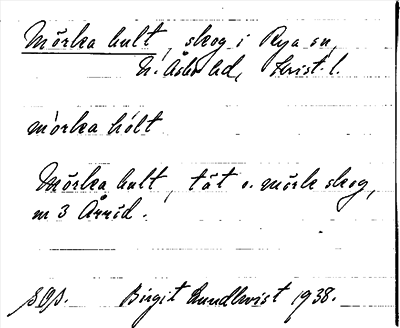 Mörka hult, skog i Rya sn,
N. Åsbo hd, Krist. l.
mórka hólt
Mörka hult, tät o. mörk skog,
m 3 Årröd.
SOA. Birgit Lundkvist 1938.